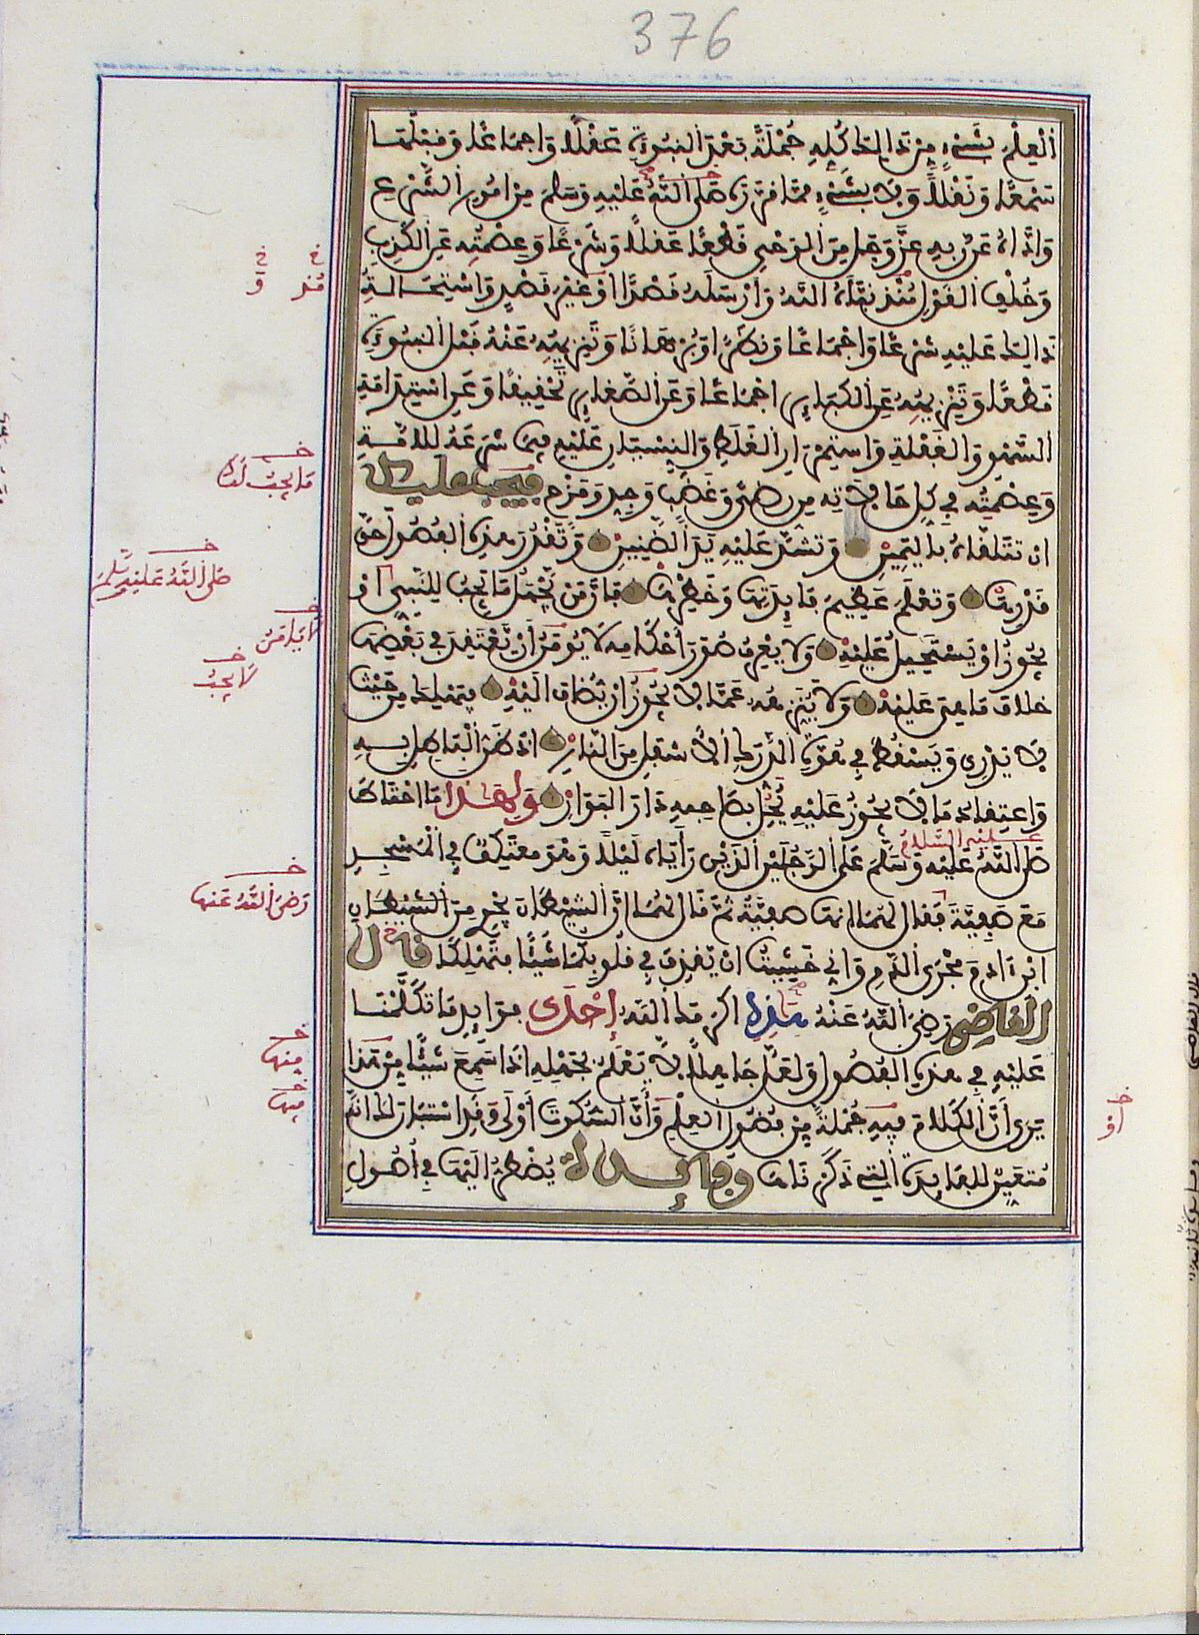 376
العلم بشيء من ذلك كله جملة بعد النبوءة عقلا واجماعا وقبلها
سمعا ونقلا ولا بشيء مما قرره صلى الله عليه وسلم من امور الشرع
واداه عن ربه عز وجل من الوحي قطعا عقلا وشرعا وعصمته عن الكذب
وخلف القول منذ نبأه الله وأرسله قصدا او غير قصد واستحالة
ذلك عليه شرعا واجماعا ونظرا وبرهانا وتنزيهه عنه قبل النبوءة
قطعا وتنزيهه عن الكبائر اجماعا وعن الصغائر تحقيقا وعن استدامة
السهو والغفلة واستمرار الغلط والنسيان عليه فيما شرعه للامة
وعصمته في كل حالاته من رضى وغضب وجد ومزح فيجب عليك
ان تتلقاه باليمين وتشد عليه يد الضنين وتقدر هذه الفصول حق
قدرها وتعلم عظيم فائدتها وخطرها فان من يجهل ما يجب للنبي او
يجوز او يستحيل عليه ولا يعرف صور أحكامه لا يومن أن يعتقد في بعضها
خلاف ما هي عليه ولا ينزهه عما لا يجوز ان يضاف اليه فيهلك من حيث
لا يدري ويسقط في هوة الدرك الاسفل من النار اذ ظن الباطل به
واعتقاد ما لا يجوز عليه يحل بصاحبه دار البوار ولهذا ما احتاط
عليه السلام
صلى الله عليه وسلم على الرجلين الذين رأياه ليلا وهو معتكف في المسجد
مع صفية فقال لهما انها صفية ثم قال لهما ان الشيطان يجري من الشيطان
ابن ءادم مجرى الدم واني خشيت ان يقذف في قلوبكما شيئا فتهلكا قال
القاضي رضي الله عنه هذه اكرمك الله إحدى فوائد ما تكلمنا
عليه في هذه الفصول ولعل جاهلا لا يعلم بجهله اذا سمع شيئا من هذا
يرى أن الكلام فيه جملة من فضول العلم وأن السكوت أولى وقد استبان لك انه
متعين للفائدة التي ذكرناها وفائدة يضطر اليها في أصول
خ خ
منذ و
خـ
ما يجب لك
خـ
صلى الله عليه وسلم
خـ
لا يامن
خـ
لا يجب
خـ
رضي الله عنها
خـ
منها
خـ
فيها
خـ
او